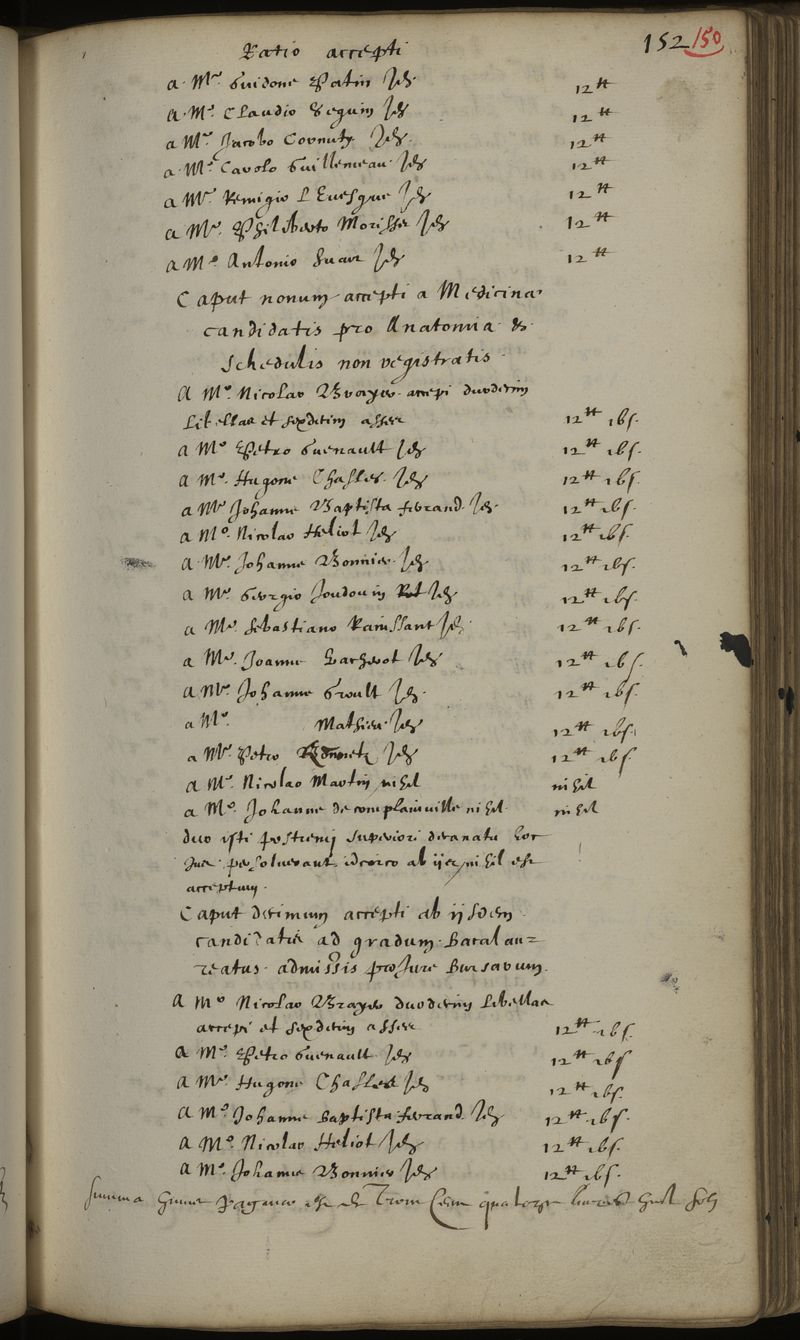 Ratio accepti
152 150
a Mro Guidone Patin Id. 12 ₶
a Mro Claudio Seguin Id. 12 ₶
a Mro Jacobo Cornuty Id. 12 ₶
a Mro Carolo Guillemeau Id. 12 ₶
a Mro Remigio L Evesque Id. 12 ₶
a Mro Philiberto Morisset Id. 12 ₶
a Mro Antonio Id. 12 ₶
Caput nonum accepti a Medicinae
candidatis pro Anatomia &
schedulis non registratis
A Mro Nicolao Brayer accepi duodecim
Libellas et sexdecim asses 12 ₶ 16 s.
a Mro Petro Guenault Id. 12 ₶ 16 s.
a Mro Hugone Chasles Id. 12 ₶ 16 s.
a Mro Johanne Baptista ferrand Id. 12 ₶ 16 s.
a Mro Nicolao Heliot Id. 12 ₶ 16 s.
a Mro Johanne Bonnier Id. 12 ₶ 16 s.
a Mro Georgio Joudouin Id. 12 ₶ 16 s.
a Mro sebastiano Rainssant Id. 12 ₶ 16 s.
a Mro Joanne Bacherot Id. 12 ₶ 16 s.
a Mro Johanne Id. 12 ₶ 16 s.
a Mro Mathieu Id. 12 ₶ 16 s.
a Mro Petro Id. 12 ₶ 16 s.
a Mro Nicolao Martin nihil nihil
a Mro Johanne de complainville nihil nihil
duo isti postremi superiori decanatu hoc
persolverant idcirco ab ijs nihil est
acceptum.
Caput decimum accepti ab ijsdem
candidatis ad gradum Bacalau=
reatus admissis pro jure Bursarum.
A Mro Nicolao Brayer duodecim Libellas
accepi et sexdecim asses 12 ₶ 16 s.
a Mro Petro Guenault Id. 12 ₶ 16 s.
a Mro Hugone Chasles Id. 12 ₶ 16 s.
a Mro Johanne Baptista ferrand Id. 12 ₶ 16 s.
a Mro Nicolao Heliot Id. 12 ₶ 16 s.
a Mro Johanne Bonnier Id. 12 ₶ 16 s.
summa huius paginae est de